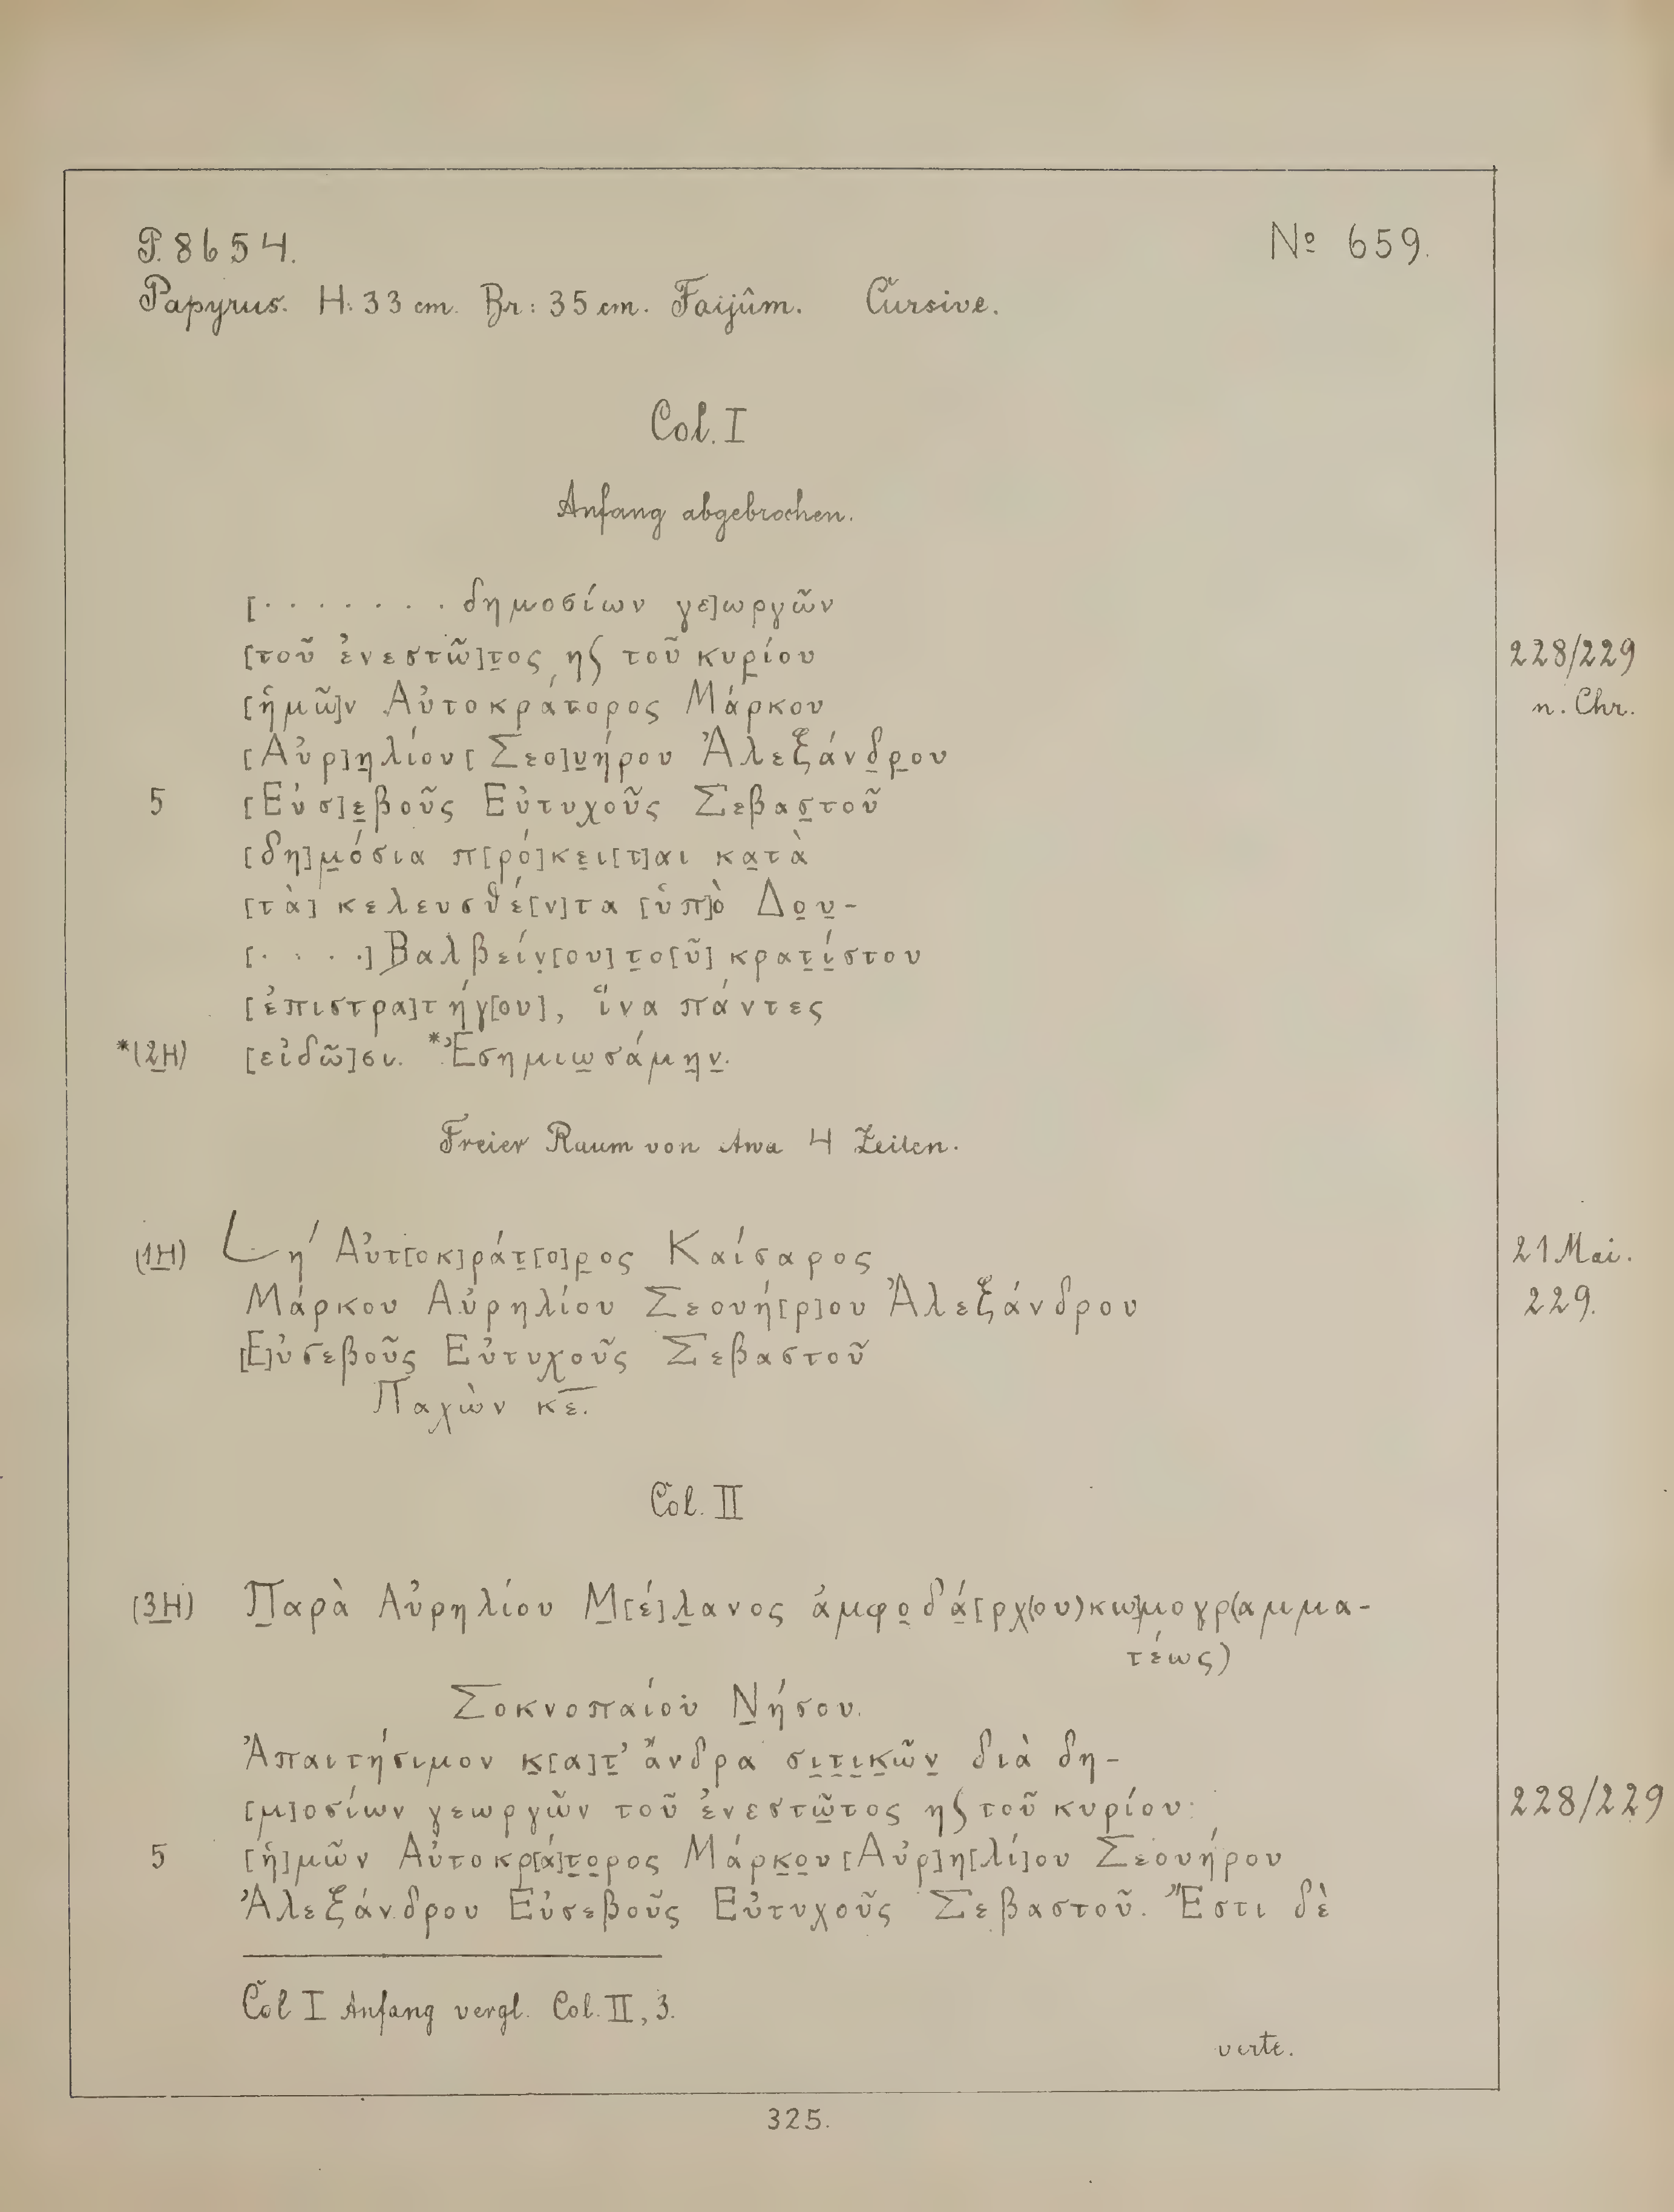 P. 8654. Nº 659.
Papyrus. H: 33 cm. Br: 35 cm. Faijûm. Cursive.
Col. I
Anfang abgebrochen.
[· · · · · · · · δημοσίων γε]ωργῶν
[τοῦ ἐνεστῶ]τ̣ος ηϛ τοῦ κυρ̣ίου 228/229
[ἡμῶ]ν Αὐτοκράτορος Μάρκου n. Chr.
[Αὐρ]η̣λίου [Σεο]υ̣ήρου Ἀλεξάνδ̣ρ̣ου
5 [Εὐσ]ε̣βοῦς Εὐτυχοῦς Σεβασ̣τοῦ
[δη]μ̣όσια π[ρό]κε̣ι[τ]αι κα̣τὰ
[τὰ] κελευσθέ[ν]τα [ὑπ]ὸ Δο̣υ̣-
[· · · ·] Βαλβείν̣[ου] τ̣ο[ῦ] κρατ̣ί̣στου
[ἐπιστρα]τήγ[ου], ἵνα πάντες
*(2H) [εἰδῶ]σι. *Ἐσημιω̣σάμη̣ν̣.
Freier Raum von etwa 4 Zeilen.
(1H) L η´ Αὐτ[οκ]ράτ̣[ο]ρ̣ος Καίσαρος 21 Mai.
Μάρκου Αὐρηλίου Σεουή[ρ]ου Ἀλεξάνδρου 229.
[Ε]ὐσεβοῦς Εὐτυχοῦς Σεβαστοῦ
Παχὼν κε̅.
Col. II
(3H) Π̣αρὰ Αὐρηλίου Μ̣[έ]λ̣ανος ἀμφο̣δά̣[ρχ(ου) κω]μογρ(αμμα-
τέως)
Σοκνοπαίου Ν̣ήσου.
Ἀπαιτήσιμον κ̣[α]τ̣’ ἄνδρα σι̣τ̣ι̣κ̣ῶν̣ διὰ δη-
[μ]οσίων γεωργῶν τοῦ ἐνεστῶ̣τος ηϛ τοῦ κυρίου 228/229
5 [ἡ]μῶν Αὐτοκρ[ά]τ̣ο̣ρος Μάρκ̣ο̣υ [Αὐρ]η[λί]ου Σεουήρου
Ἀλεξάνδρου Εὐσεβοῦς Εὐτυχοῦς Σεβαστοῦ. Ἔστι δὲ
Col I Anfang vergl. Col. II, 3.
verte.
325.